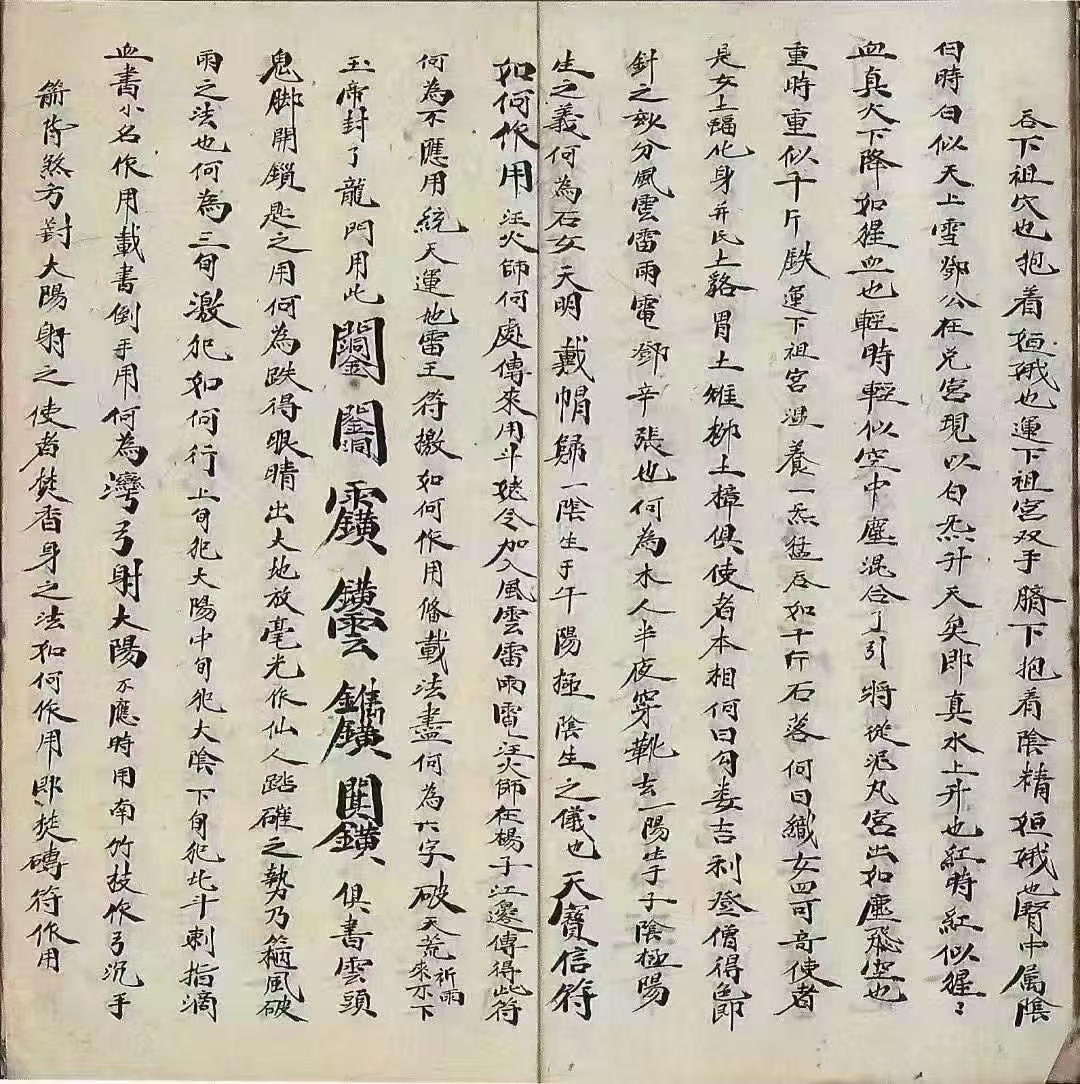 吞下祖穴也抱着姮娥也運下祖宮双手臍下抱着陰精姮娥也腎中属陰
白時白似天上雪鄧公在兑宮現以白炁升天矣即真水上升也紅時紅似猩〻
血真火下降如猩血也輕時輕似空中塵混合了引將從泥丸宮出如塵飛空也
重時重似千斤鉄運下祖宮養一炁猛吞如千斤石落何曰織女四可哥使者
是女土蝠化身并氐土貉胃土雉柳土樟俱使者本相何曰勾娄吉利登僧得色即
針之秋分風雲雷雨電鄧辛張也何為木人半夜穿靴去一陽生于子陰極陽
生之義何為石女天明戴帽歸一陰生于午陽極陰生之儀也天寶信符
如何作用汪火師何處傳來用斗姥令加入風雲雷雨電汪火師在楊子江邊傳得此符
何為不應用統天運地雷王符檄如何作用俻載法盡何為六字破天荒祈雨來不下
玉帝封了龍門用此俱書雲頭
鬼脚開鎖是之用何為跌得眼睛出大地放毫光作仙人踏碓之勢乃嵐風破
雨之法也何為三旬激犯如何行上旬犯太陽中旬犯太陰下旬犯北斗刺指滴
血書小名作用載書倒手用何為灣弓射大陽不應時用南竹枝作弓沉手
箭煞方對大陽射之使者焚香身之法如何作用即焚磚符作用